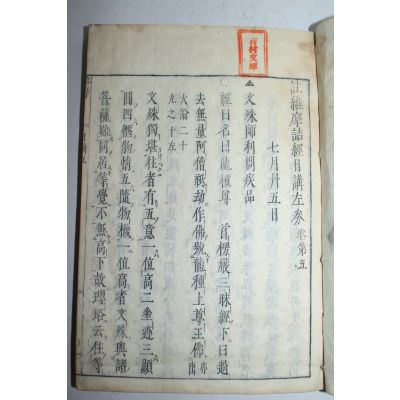 吉村文庫
註維摩詰經日講左券 卷第五
七月廿五日
文殊師利問疾品
經曰名曰龍種尊 首楞嚴三昧經下曰過
去無量阿僧祇劫作佛號龍種上尊王佛 亦出
大論二十
九之十左
文殊獨堪往者有五意一位高二垂迹三顯
圓四慰物情五隨物機一位高者文殊與諸
菩薩雖同居等覺不無高下故瓔珞云住等